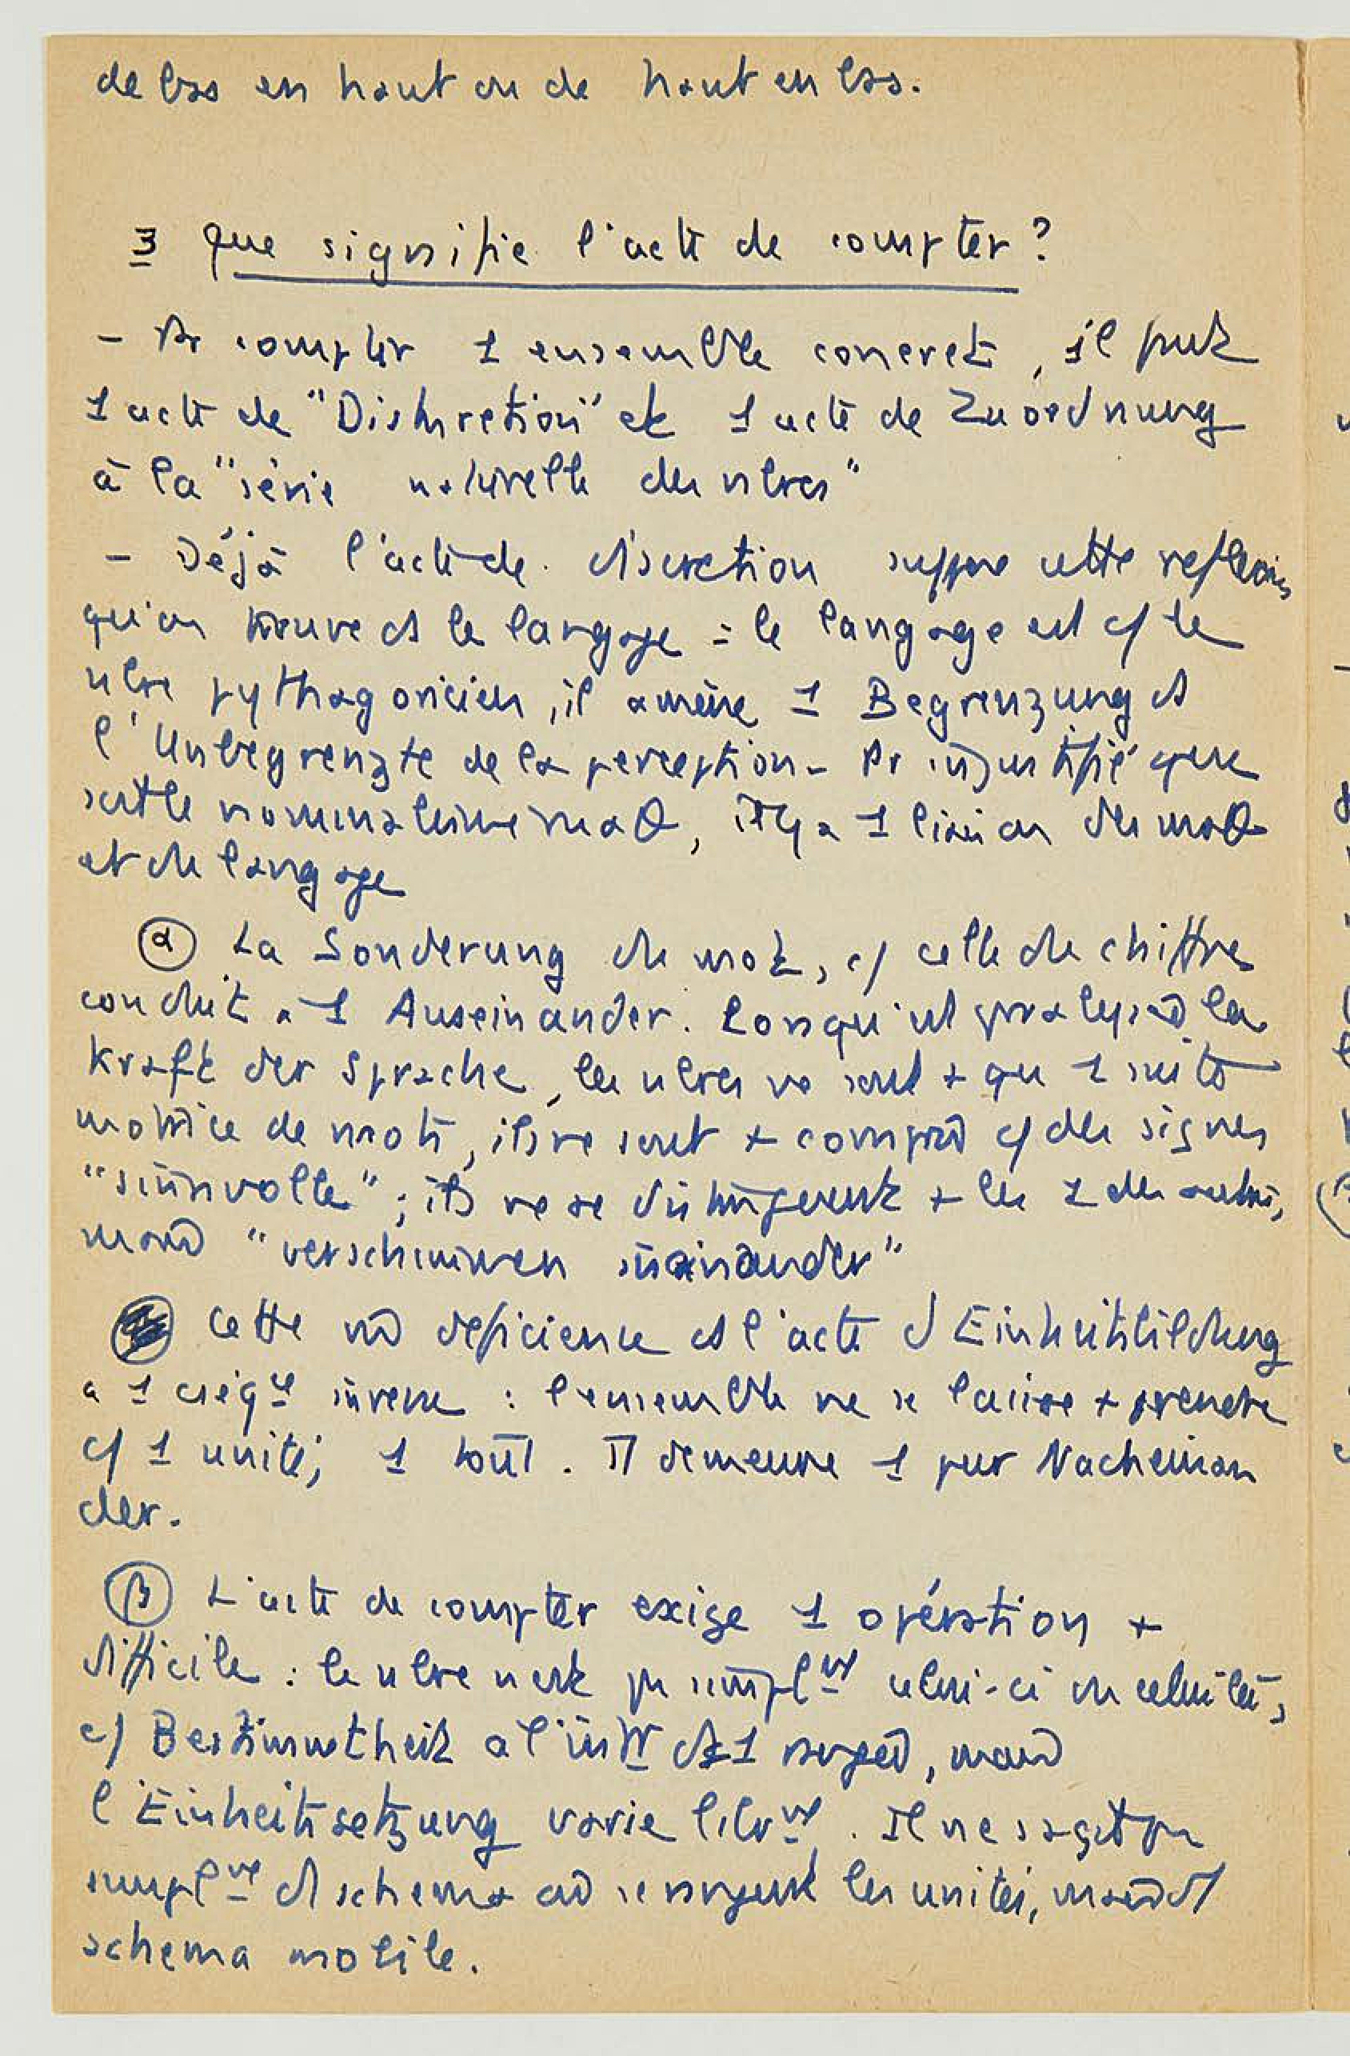 de bas en haut ou de haut en bas.
3 que signifie l'acte de compter ?
- Pr compter 1 ensemble concret, il faut
1 acte de "Diskretion" et 1 acte de Zuordnung
à la "série naturelle des nbres"
- Déjà l'acte de discretion suppose cette reflexion
qu'on trouve ds le langage : le langage est c/ le
nbre pythagoricien, il amène 1 Begrenzung ds
l'Unbegrenzte de la perception - Pr injustifié que
soit le nominalisme math, il y a 1 liaison des math
et du langage
α La Sonderung du mot, c/ celle du chiffre
conduit à 1 Auseinander. Lorsqu'est paralysée la
Kraft der Sprache, les nbres ne sont + qu 1 suite
motrice de mots, ils ne sont + compris c/ des signes
"sinnvolle" ; ils ne se distinguent + les 1 des autres,
mais "verschwimmen ineinander"
Cette deficience ds l'acte d Einheitsbildung
a 1 cséqce inverse : l'ensemble ne se laisse + prendre
c/ 1 unité, 1 tout. Il demeure 1 pur Nacheinan
der.
β L'acte de compter exige 1 opération +
difficile : le nbre n'est pas simplmt celui-ci ou celui là,
c/ Bestimmtheit a l'intr ds 1 rangée, mais
l'Einheitssetzung varie librmt. Il ne s'agit pas
simplmt d schema où se rangent les unités, mais d
schema mobile.